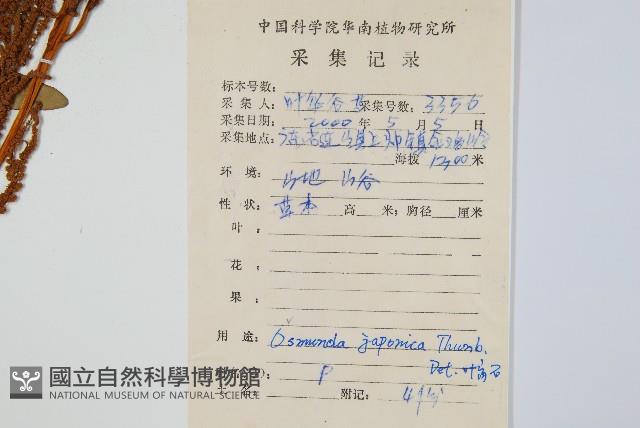 中国科学院华南植物研究所
采集记录
标本号数:
采集人: 叶华谷 等 采集号数: 3356
采集日期: 2000 年 5 月 5 日
采集地点:
海拨 1200 米
环境: 山地 山谷
性状: 草本 高 米; 胸径 厘米
叶:
花:
果:
用途: Osmunda japonica Thunb.
Det. 叶
P
附记: 4份
國立自然科學博物館
NATIONAL MUSEUM OF NATURAL SCIENCE